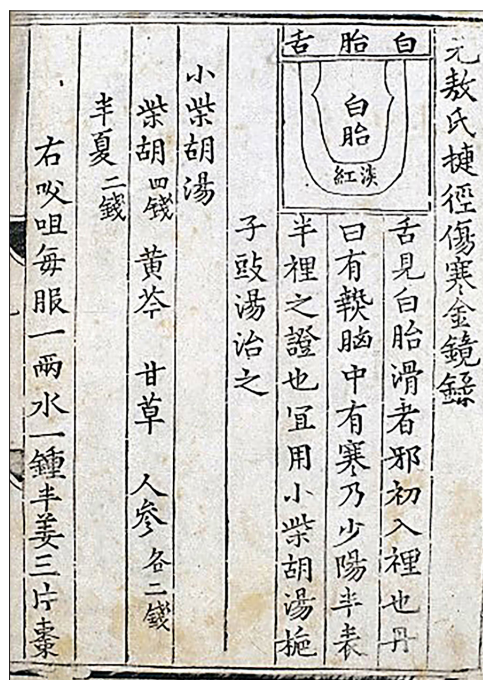 元敖氏捷徑傷寒金鏡錄
白胎舌
白胎
淡紅
舌見白胎滑者邪初入裡也丹
曰有熱胸中有寒乃少陽半表
半裡之證也宜用小柴胡湯梔
子豉湯治之
小柴胡湯
柴胡四錢 黄芩 甘草 人參各二錢
半夏二錢
右㕮咀每服一兩水一鍾半姜三片棗